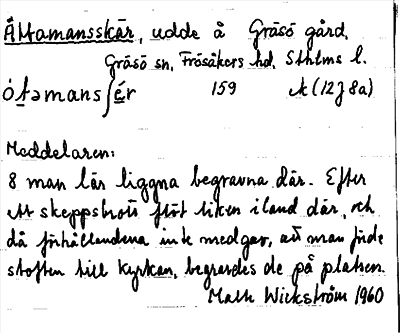 Åttamansskär, udde å Gräsö gård,
Gräsö sn, Frösåkers hd, Sthlms l.
ó̱təmansʃɛ́r 159 k (12J8a)
Meddelaren:
8 man lär liggna begravna där. Efter
ett skeppsbrott flöt liken iland där, och
då förhållandena inte medgav, att man förde
stoften till kyrkan, begravdes de på platsen.
Mats Wickström 1960